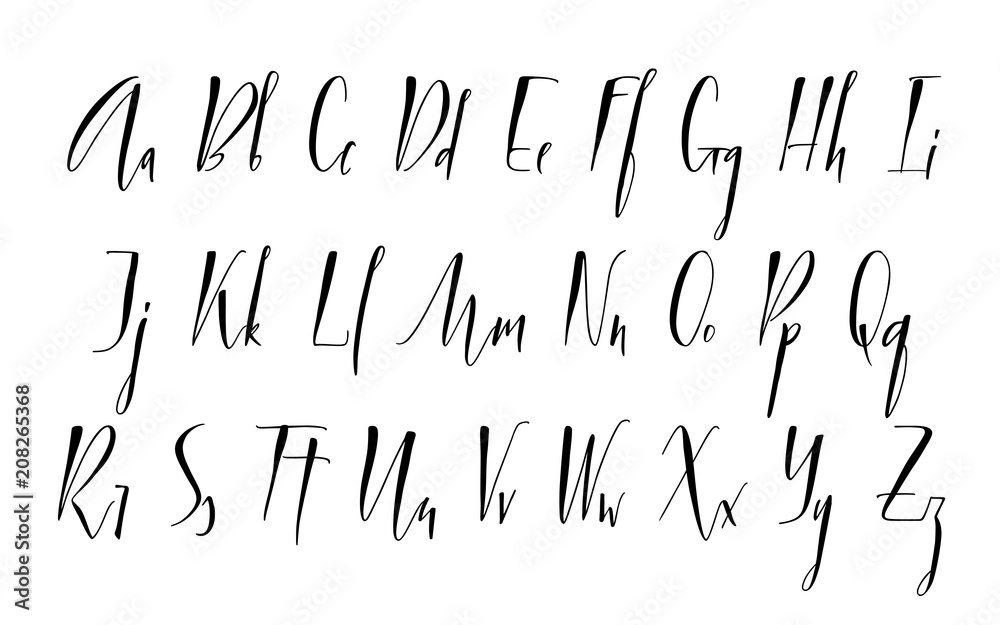 Aa Bb Cc Dd Ee Ff Gg Hh Ii
Jj Kk Ll Mm Nn Oo Pp Qq
Rr Ss Tt Uu Vv Ww Xx Yy Zz
Adobe Stock | #208265368